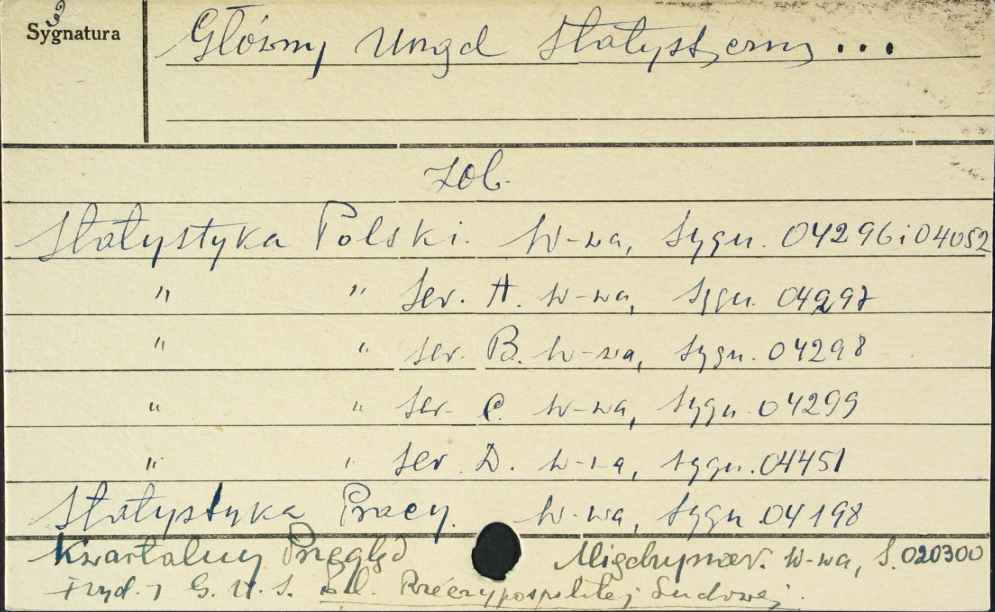 Sygnatura
Główny Urząd Statystyczny ...
zob.
Statystyka Polski. W-wa, Sygn. 04296 i 04052
" " Ser. A. W-wa, Sygn. 04297
" " Ser. B. W-wa, Sygn. 04298
" " Ser. C. W-wa, Sygn. 04299
" " Ser. D. W-wa, Sygn. 04451
Statystyka Pracy. W-wa, Sygn. 04198
Kwartalny Przegląd Międzynar. W-wa, S. 020300
G. U. S. Rzeczypospolitej Ludowej.